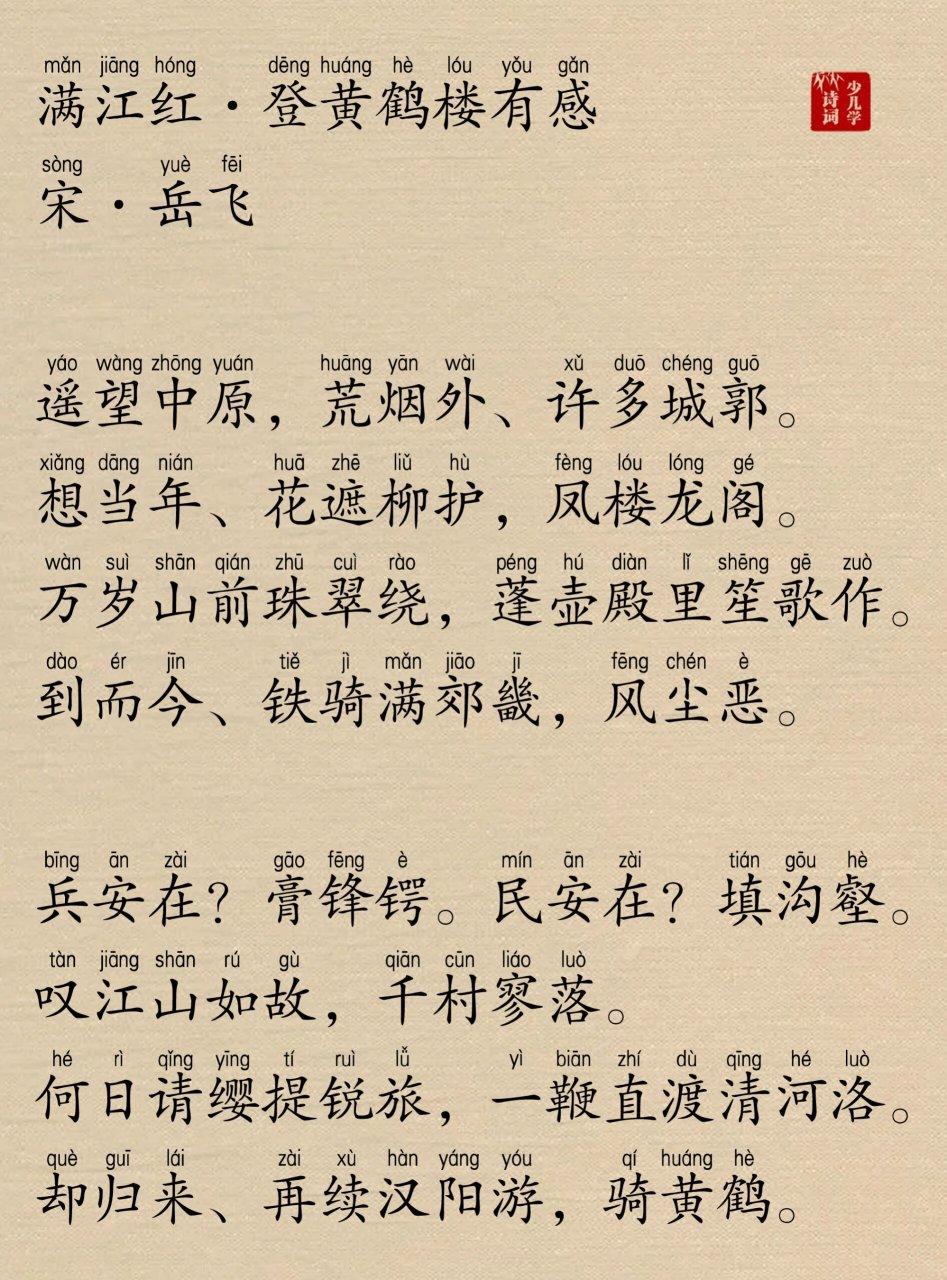 mǎn jiāng hóng dēng huáng hè lóu yǒu gǎn
满江红·登黄鹤楼有感
少儿学
诗词
sòng yuè fēi
宋·岳飞
yáo wàng zhōng yuán huāng yān wài xǔ duō chéng guō
遥望中原，荒烟外、许多城郭。
xiǎng dāng nián huā zhē liǔ hù fèng lóu lóng gé
想当年、花遮柳护，凤楼龙阁。
wàn suì shān qián zhū cuì rào péng hú diàn lǐ shēng gē zuò
万岁山前珠翠绕，蓬壶殿里笙歌作。
dào ér jīn tiě jì mǎn jiāo jī fēng chén è
到而今、铁骑满郊畿，风尘恶。
bīng ān zài gāo fēng è mín ān zài tián gōu hè
兵安在？膏锋锷。民安在？填沟壑。
tàn jiāng shān rú gù qiān cūn liáo luò
叹江山如故，千村寥落。
hé rì qǐng yīng tí ruì lǚ yì biān zhí dù qīng hé luò
何日请缨提锐旅，一鞭直渡清河洛。
què guī lái zài xù hàn yáng yóu qí huáng hè
却归来、再续汉阳游，骑黄鹤。